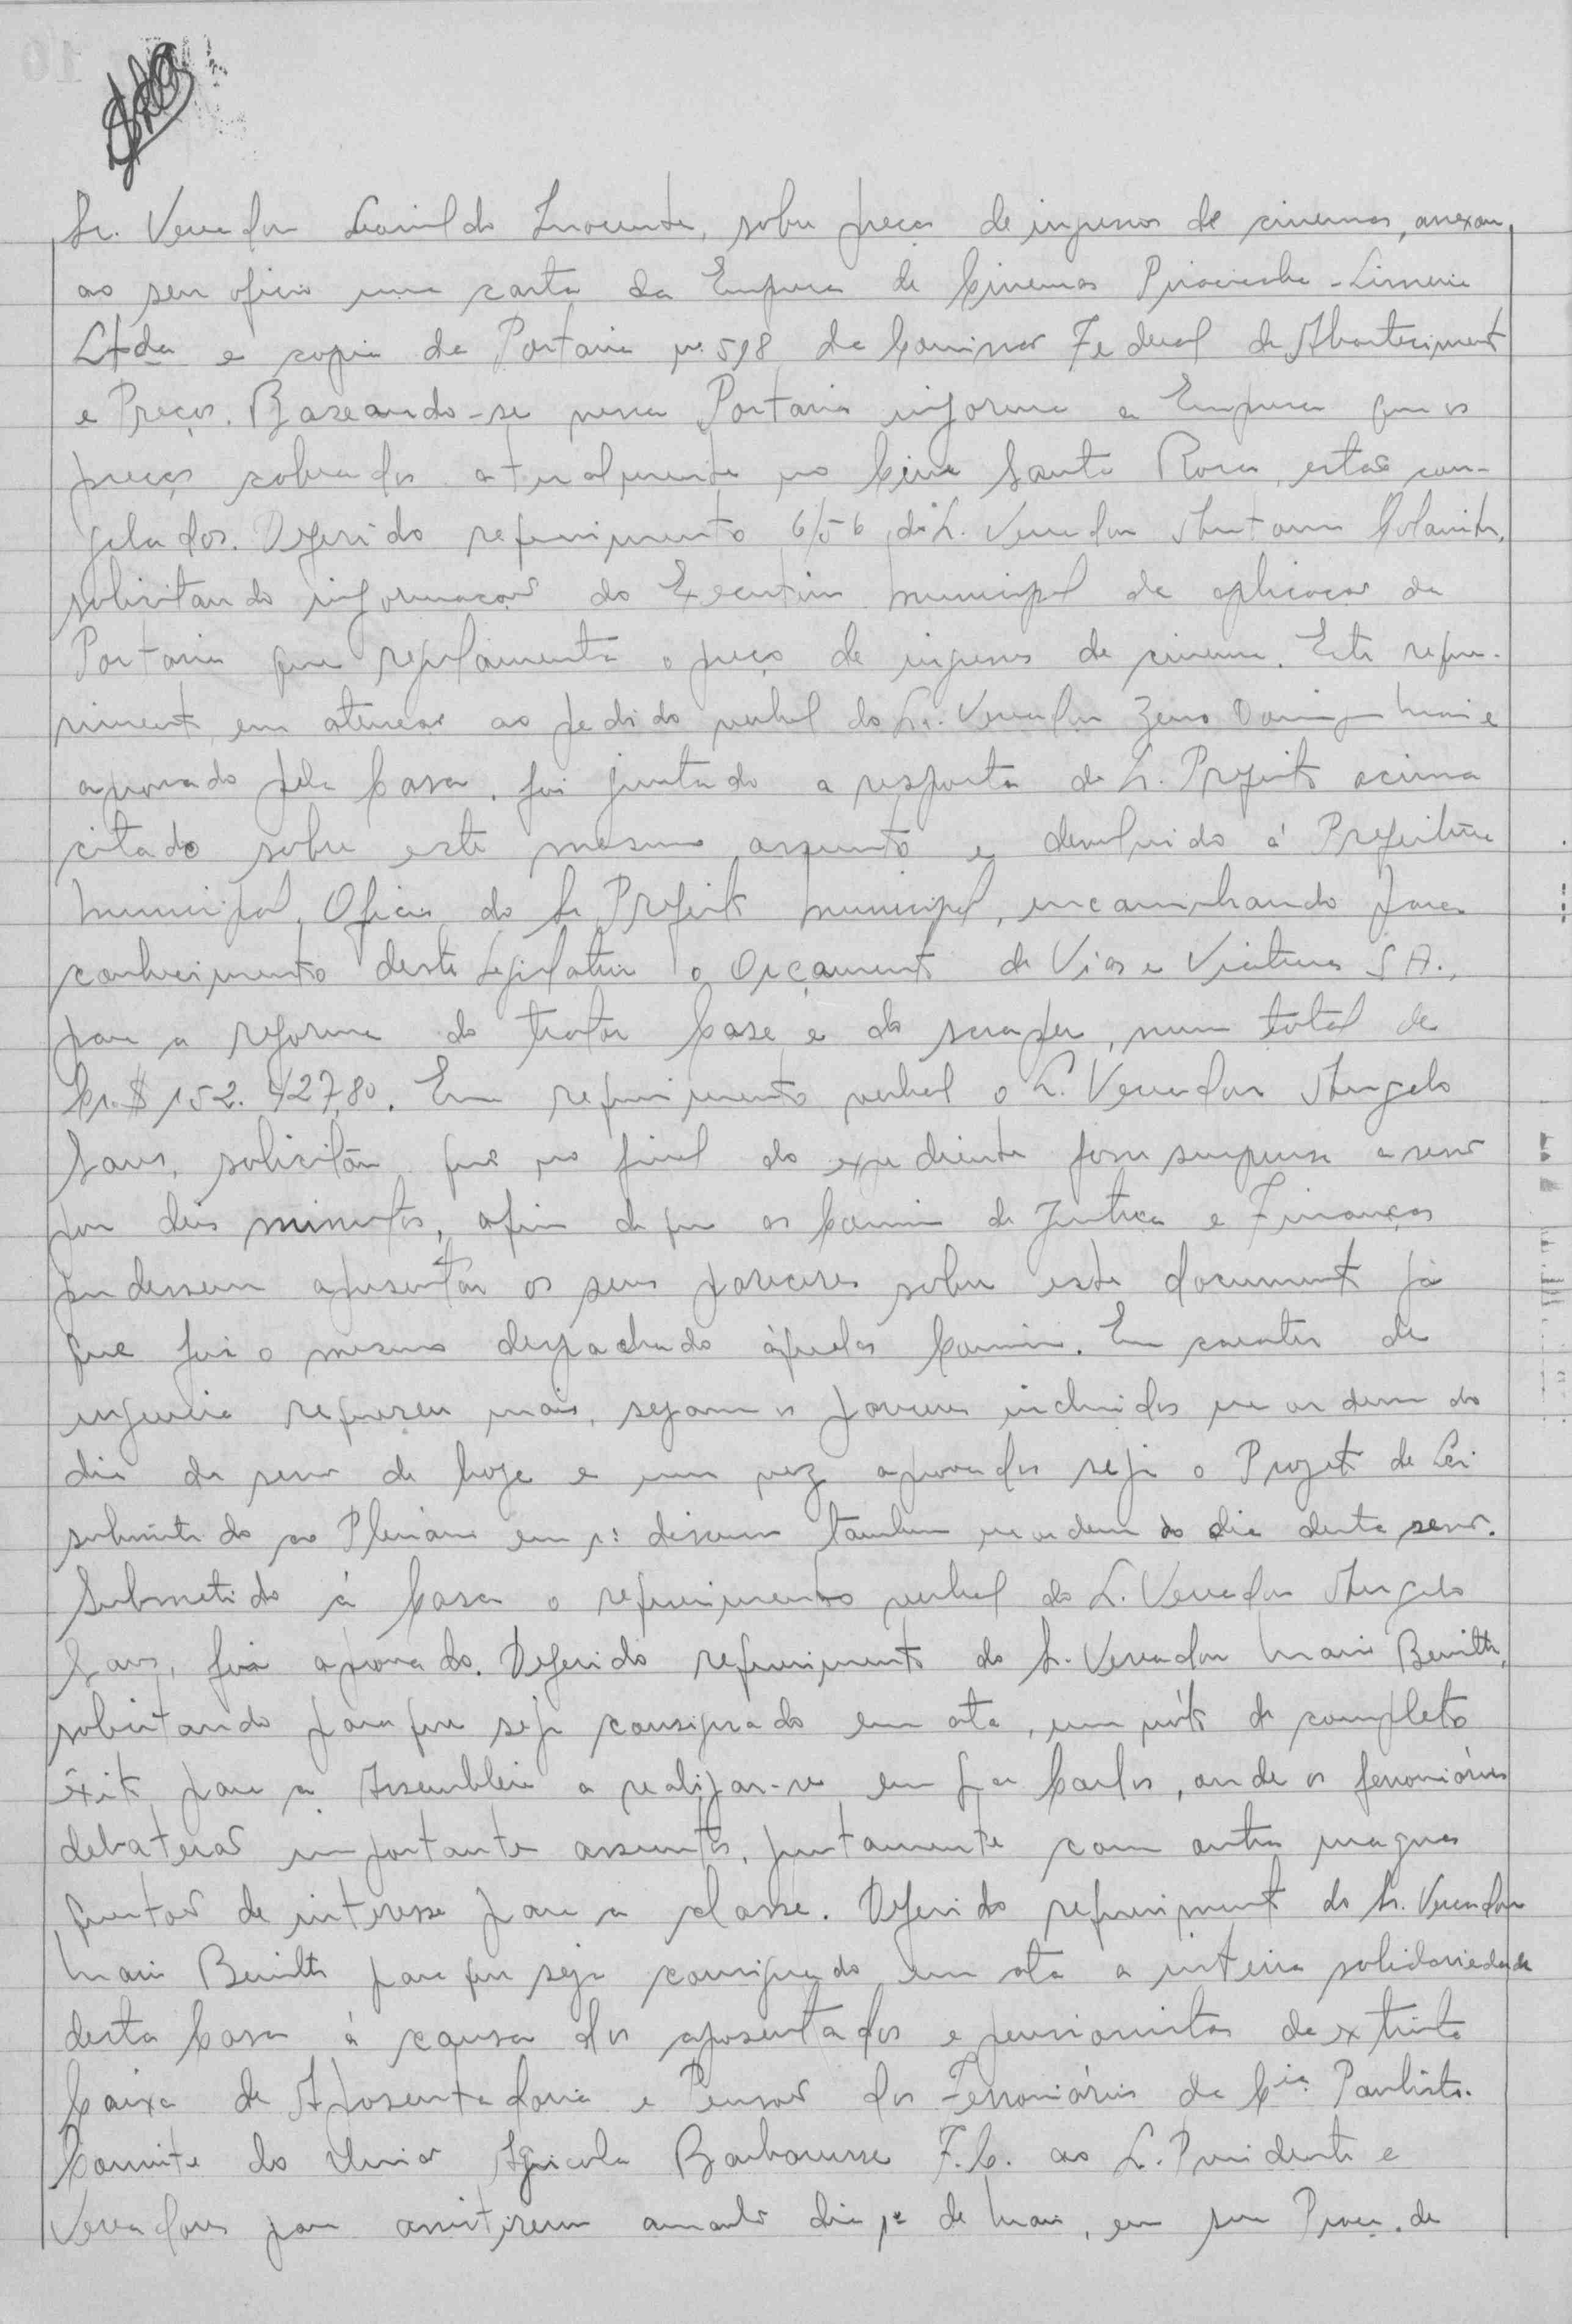 Sr. Vereador Leonildo Inocente, sobre preços de ingressos de cinemas, anexou
ao seu oficio uma carta da Empresa de Cinemas Piracicaba-Limeira
Ltda e copia da Portaria nº 598 da Comissão Federal de Abastecimento
e Preços. Bazeando-se nessa Portaria informa a Empresa que os
preços cobrados atualmente no Cine Santa Rosa, estão con-
gelados. Deferido requerimento 6/56 do Sr. Vereador Antonio
solicitando informações do Executivo Municipal da aplicação da
Portaria que regulamenta o preço de ingressos de cinema. Este reque-
rimento em atenção ao pedido verbal do Sr. Vereador Zeno Maia e
aprovado pela Casa, foi juntado a resposta do Sr. Prefeito acima
citado sobre este mesmo assunto e devolvido á Prefeitura
Municipal. Oficio do Sr Prefeito Municipal, encaminhando para
conhecimento deste Legislativo o Orçamento de Vias e Viaturas S.A.,
para a reforma do trator Case e do scraper, num total de
Cr.$ 152.427,80. Em requerimento verbal o Sr. Vereador Angelo
Sans, solicitou que no final do expediente fosse suspensa a sessão
por dois minutos, afim de que as Comissões de Justiça e Finanças
pudessem apresentar os seus pareceres sobre este documento já
que foi o mesmo despachado áquelas Comissões. Em carater de
urgencia requereu mais, sejam os pareceres incluidos na ordem do
dia da sessão de hoje e uma vez aprovados seja o Projeto de Lei
submetido ao Plenario em 1ª discussão tambem na ordem do dia desta sessão.
Submetido á Casa o requerimento verbal do Sr. Vereador Angelo
Sans, foi aprovado. Deferido requerimento do Sr. Vereador Mario
solicitando para que seja consignado em ata, um voto de completo
êxito para a Assembleia a realizar-se em São Carlos, onde os ferroviários
debaterão importante assunto, juntamente com outras magnas
questões de interesse para a classe. Deferido requerimento do Sr. Vereador
Mario para que seja consignado em ata a inteira solidariedade
desta Casa á causa dos aposentados e pensionistas da extinta
Caixa de Aposentadoria e Pensões dos Ferroviários da Cia. Paulista.
Convite do União Agricola Barbarense F.C. ao Sr. Presidente e
Vereadores para assistirem amanhã dia 1º de Maio, em sua Praça de